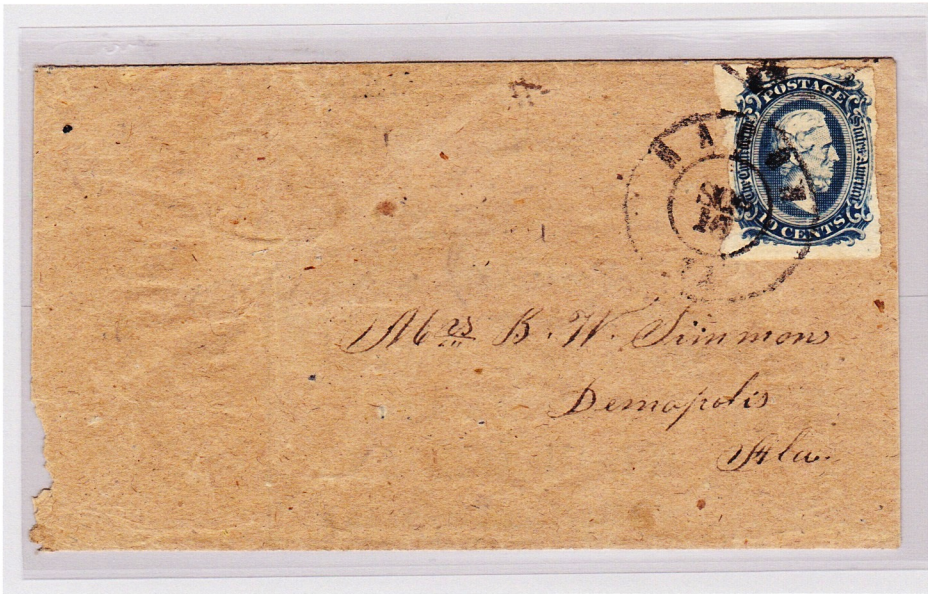 POSTAGE
The Confederate States of America
10 CENTS
Mrs B. W. Simmons
Demopolis
Ala.